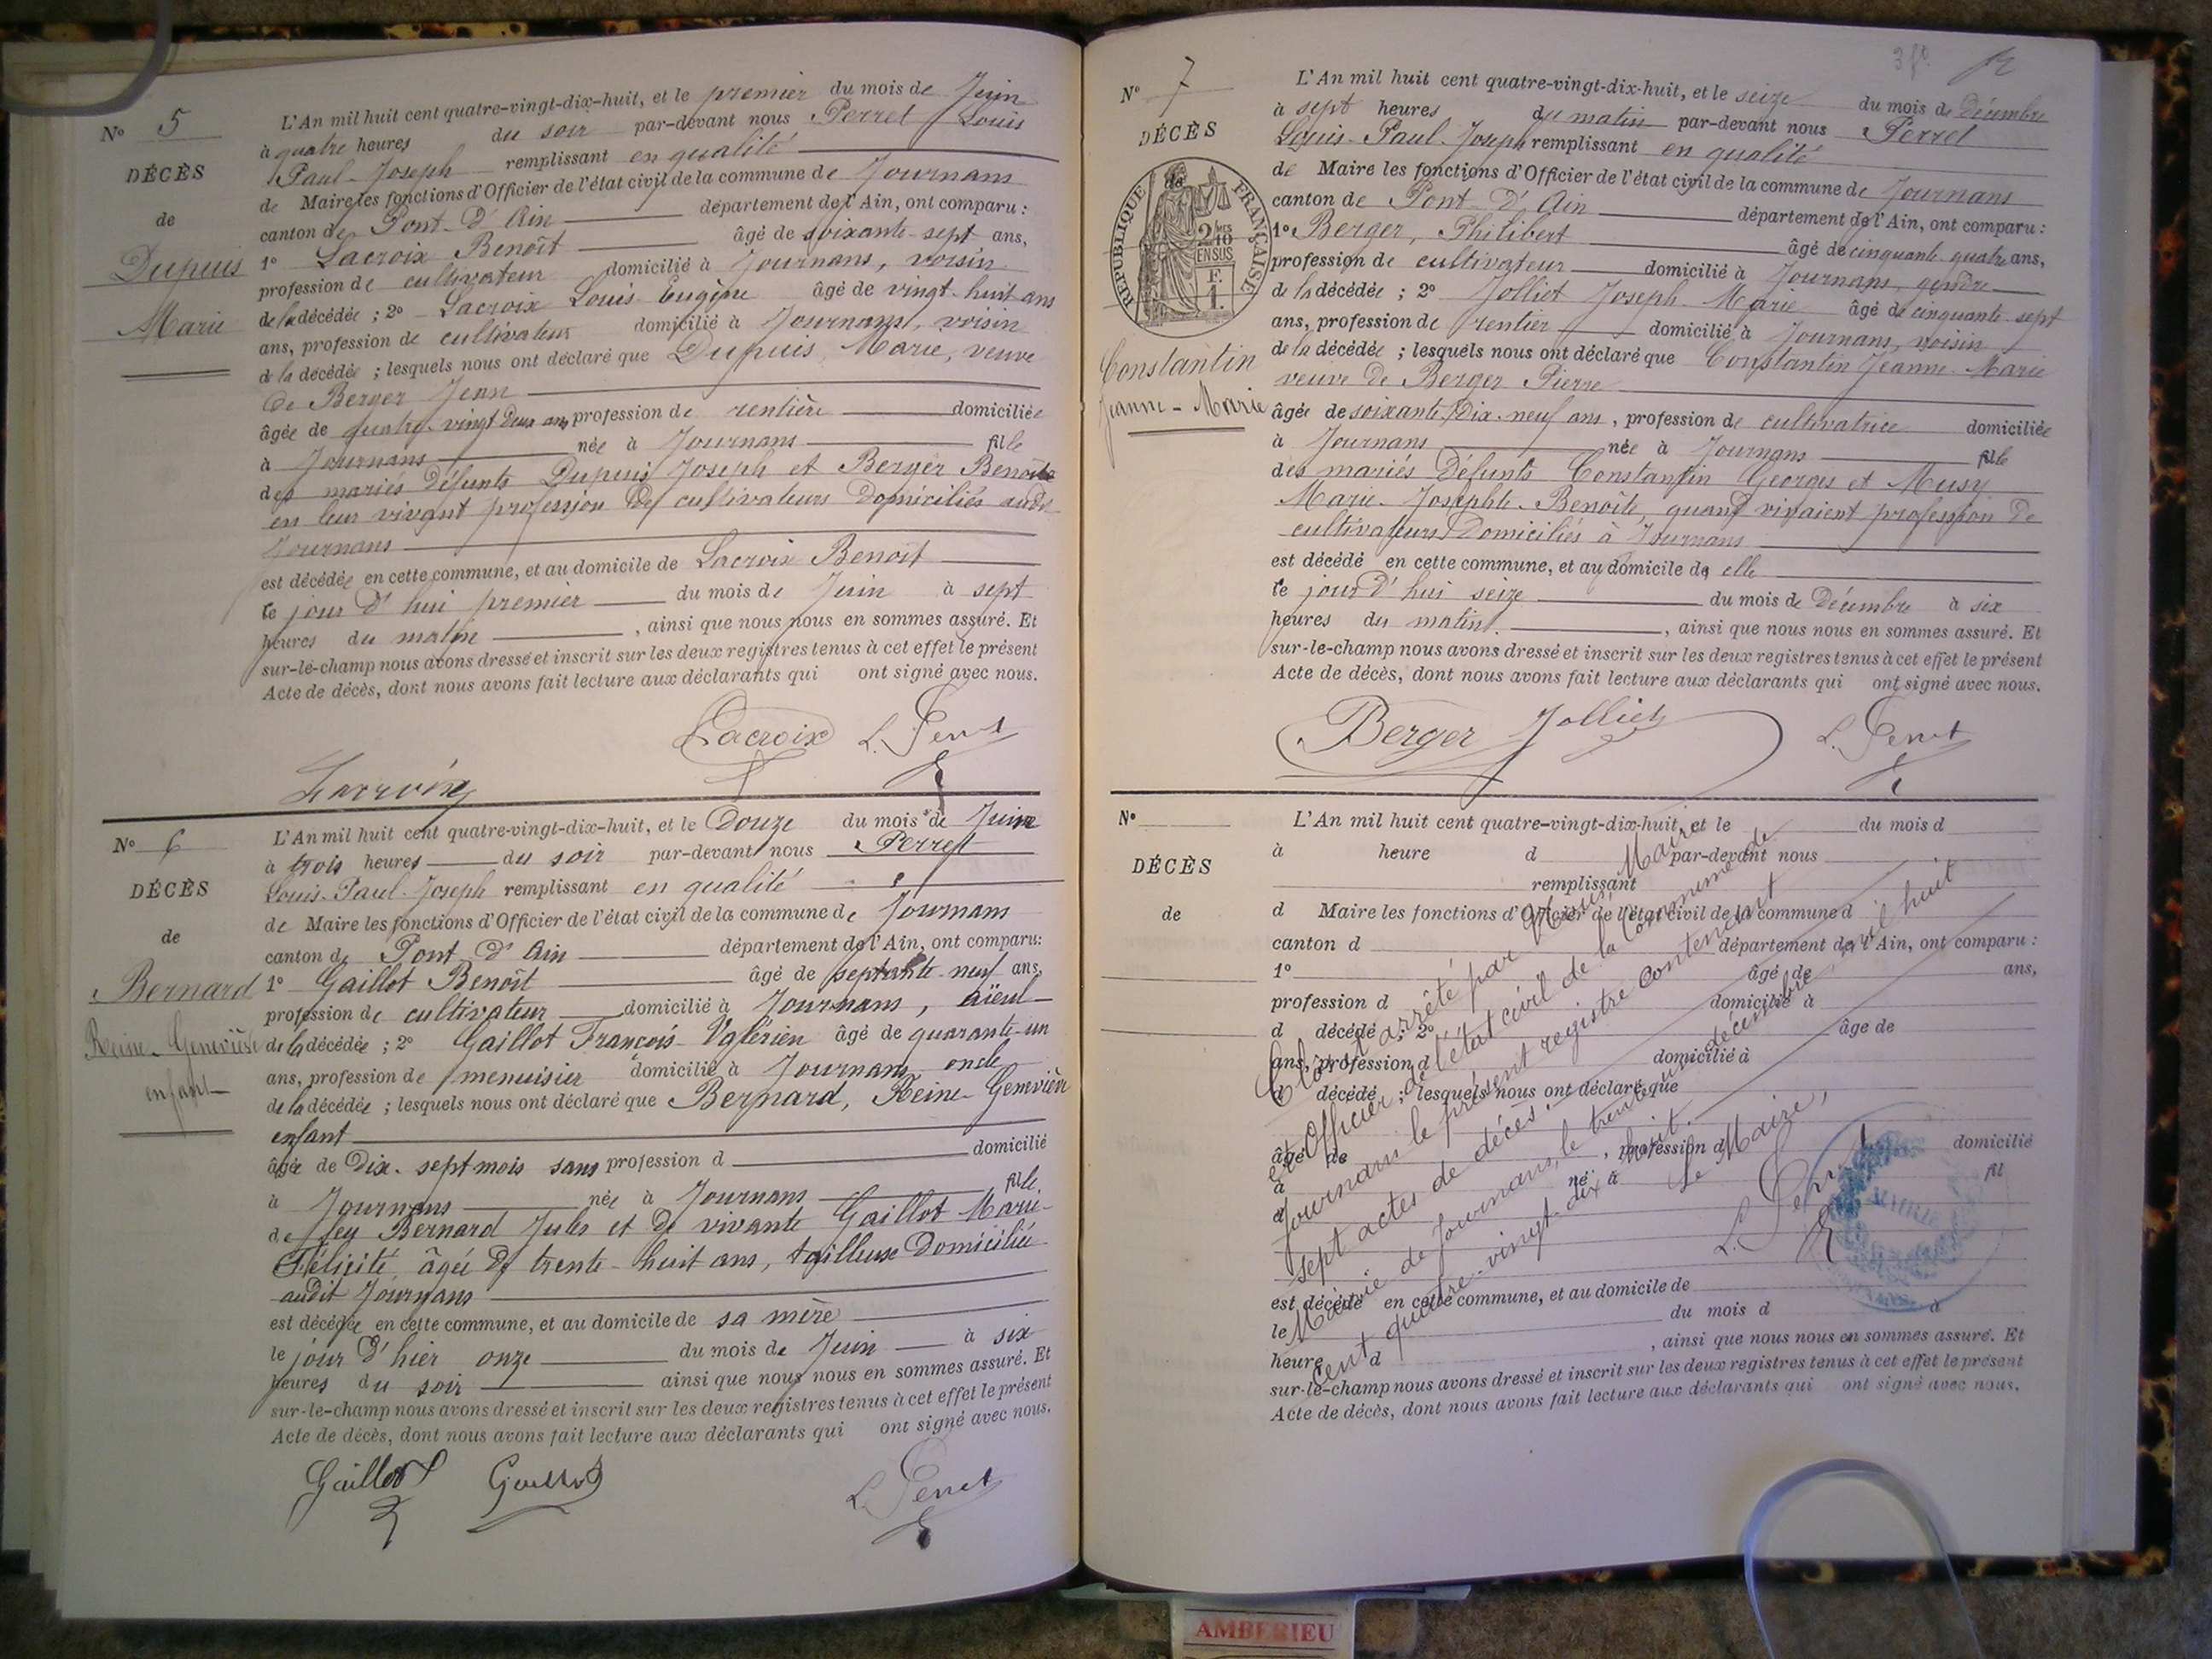 Nº 5
DÉCÈS
de
Dupuis
Marie
L'An mil huit cent quatre-vingt-dix-huit, et le premier du mois de Juin
à quatre heures du soir par-devant nous Perret Louis
Paul-Joseph remplissant en qualité
de Maire les fonctions d'Officier de l'état civil de la commune de Journans
canton de Pont-d'Ain département de l'Ain, ont comparu :
1º Lacroix Benoît âgé de soixante-sept ans,
profession de cultivateur domicilié à Journans, voisin
de la décédée ; 2º Lacroix Louis Eugène âgé de vingt-huit ans
ans, profession de cultivateur domicilié à Journans, voisin
de la décédée ; lesquels nous ont déclaré que Dupuis, Marie, veuve
de Berger Jean
âgée de quatre-vingt deux ans profession de rentière domiciliée
à Journans née à Journans fille
des mariés défunts Dupuis Joseph et Berger Benoîte
en leur vivant profession de cultivateurs domiciliés audit
Journans
est décédée en cette commune, et au domicile de Lacroix Benoît
le jour d'hui premier du mois de Juin à sept
heures du matin, ainsi que nous nous en sommes assuré. Et
sur-le-champ nous avons dressé et inscrit sur les deux registres tenus à cet effet le présent
Acte de décès, dont nous avons fait lecture aux déclarants qui ont signé avec nous.
Lacroix L. Perret
Lacroix
Nº 6
DÉCÈS
de
Bernard
Reine-Geneviève
enfant
L'An mil huit cent quatre-vingt-dix-huit, et le Douze du mois de Juin
à trois heures du soir par-devant nous Perret
Louis-Paul-Joseph remplissant en qualité
de Maire les fonctions d'Officier de l'état civil de la commune de Journans
canton de Pont-d'Ain département de l'Ain, ont comparu :
1º Gaillot Benoît âgé de septante-neuf ans,
profession de cultivateur domicilié à Journans, aïeul
de la décédée ; 2º Gaillot François Valérien âgé de quarante-un
ans, profession de menuisier domicilié à Journans, oncle
de la décédée ; lesquels nous ont déclaré que Bernard, Reine-Geneviève
enfant
âgée de Dix-sept mois sans profession d domicilié
à Journans née à Journans fille
de feu Bernard Jules et de vivante Gaillot Marie-
Félicité, âgée de trente-huit ans, tailleuse domiciliée
audit Journans
est décédée en cette commune, et au domicile de sa mère
le jour d'hier onze du mois de Juin à six
heures du soir ainsi que nous nous en sommes assuré. Et
sur-le-champ nous avons dressé et inscrit sur les deux registres tenus à cet effet le présent
Acte de décès, dont nous avons fait lecture aux déclarants qui ont signé avec nous.
Gaillot Gaillot L. Perret
Nº 7
DÉCÈS
de
RÉPUBLIQUE FRANÇAISE
2/10 EN SUS
F. 1
Constantin
Jeanne-Marie
L'An mil huit cent quatre-vingt-dix-huit, et le seize du mois de Décembre
à sept heures du matin par-devant nous Perret
Louis-Paul-Joseph remplissant en qualité
de Maire les fonctions d'Officier de l'état civil de la commune de Journans
canton de Pont-d'Ain département de l'Ain, ont comparu :
1º Berger, Philibert âgé de cinquante-quatre ans,
profession de cultivateur domicilié à Journans, gendre
de la décédée ; 2º Jolliet Joseph-Marie âgé de cinquante-sept
ans, profession de rentier domicilié à Journans, voisin
de la décédée ; lesquels nous ont déclaré que Constantin Jeanne-Marie
veuve de Berger Pierre
âgée de soixante Dix-neuf ans, profession de cultivatrice domiciliée
à Journans née à Journans fille
des mariés défunts Constantin Georges et Musy
Marie-Josephte-Benoîte, quand vivaient profession de
cultivateurs domiciliés à Journans
est décédé en cette commune, et au domicile de elle
le jour d'hui seize du mois de Décembre à six
heures du matin, ainsi que nous nous en sommes assuré. Et
sur-le-champ nous avons dressé et inscrit sur les deux registres tenus à cet effet le présent
Acte de décès, dont nous avons fait lecture aux déclarants qui ont signé avec nous.
Berger Jolliet L. Perret
Nº
DÉCÈS
de
L'An mil huit cent quatre-vingt-dix-huit, et le du mois d
à heure d par-devant nous
remplissant
d Maire les fonctions d'Officier de l'état civil de la commune d
canton d département de l'Ain, ont comparu :
1º âgé de ans,
profession d domicilié à
d décédé ; 2º âge de
ans, profession d domicilié à
d décédé ; lesquels nous ont déclaré que
âgé de , profession d domicilié
à né à fil
d
est décédé en cette commune, et au domicile de
le du mois d à
heure d , ainsi que nous nous en sommes assuré. Et
sur-le-champ nous avons dressé et inscrit sur les deux registres tenus à cet effet le présent
Acte de décès, dont nous avons fait lecture aux déclarants qui ont signé avec nous.
Clos et arrêté par Nous, Maire
et Officier de l'état civil de la Commune de
Journans le présent registre contenant
sept actes de décès.
Mairie de Journans, le trente-un décembre mil huit
cent quatre-vingt-dix-huit.
Le Maire,
L. Perret
MAIRIE
AMBERIEU